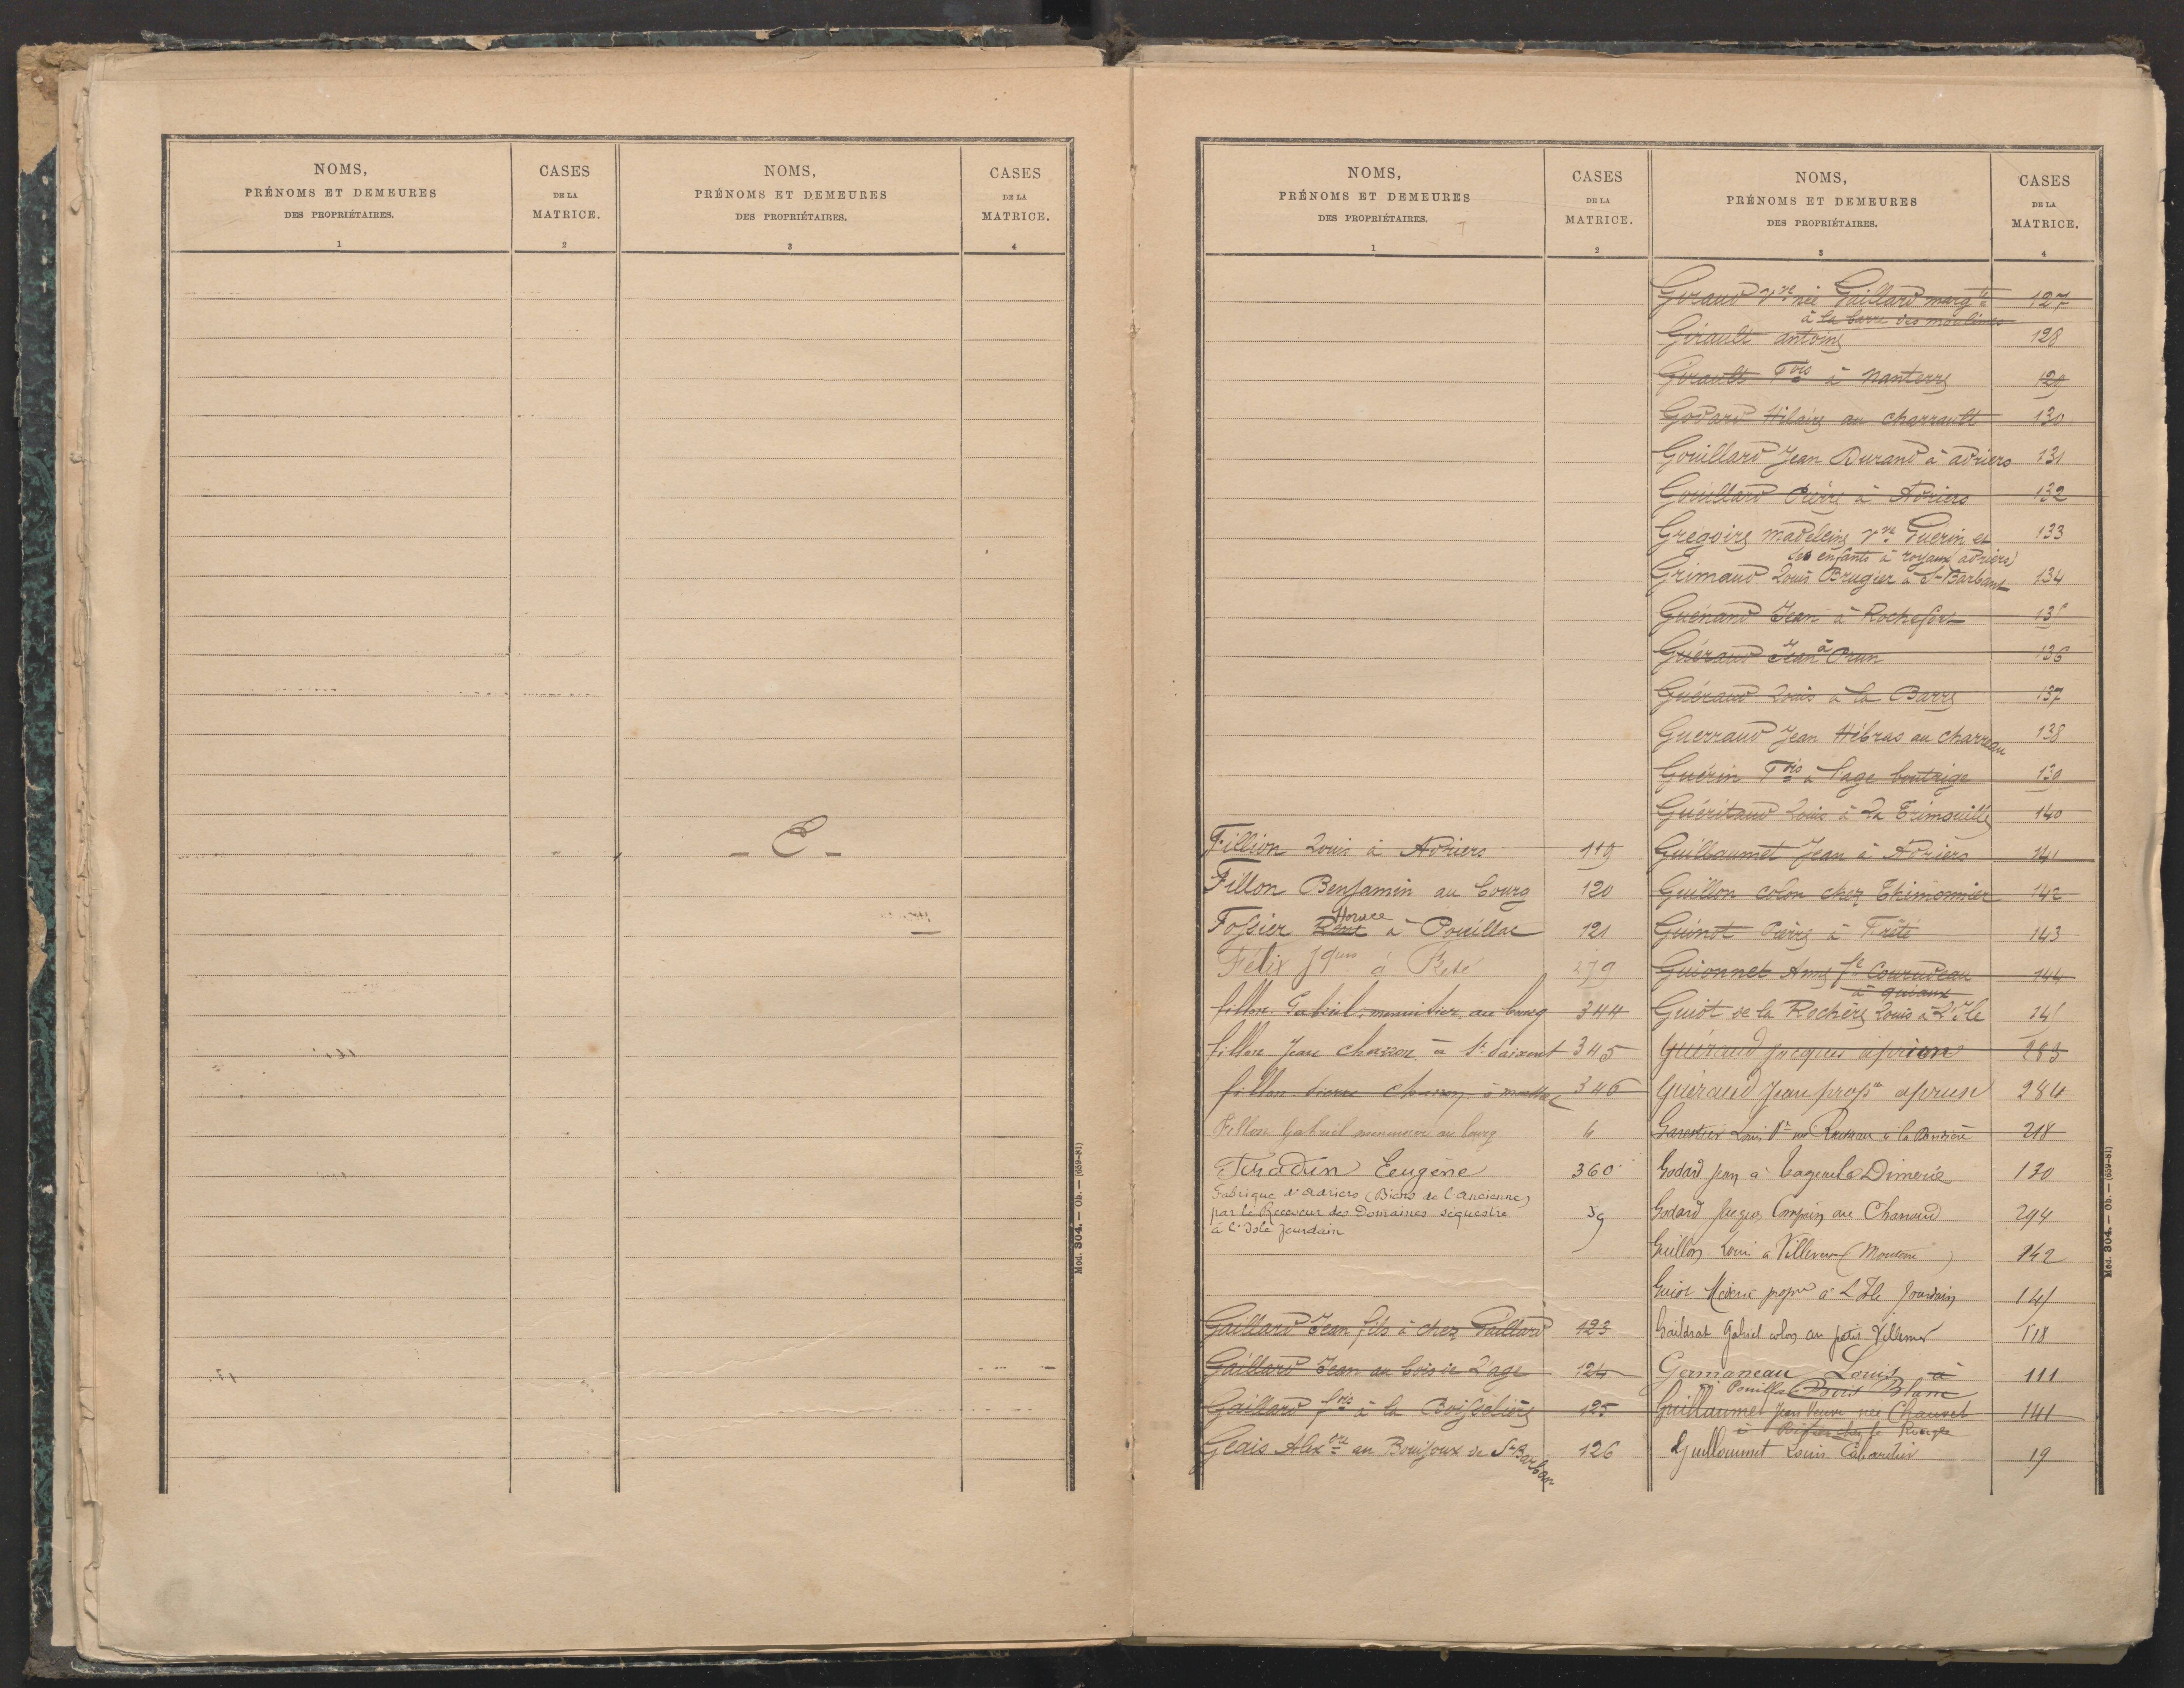 NOMS,
PRÉNOMS ET DEMEURES
DES PROPRIÉTAIRES.
1
CASES
DE LA
MATRICE.
2
NOMS,
PRÉNOMS ET DEMEURES
DES PROPRIÉTAIRES.
3
CASES
DE LA
MATRICE.
4
- E -
Mod. 304. — Ob. — (659-81)
NOMS,
PRÉNOMS ET DEMEURES
DES PROPRIÉTAIRES.
1
CASES
DE LA
MATRICE.
2
Fillion Louis à Adriers 119
Fillon Benjamin au bourg 120
Horace
Fossier à Pouillac 121
Félix Jques à Frété 279
fillon Gabriel menuisier au bourg 344
fillon Jean chasson à St Saixent 345
fillon Pierre chasson à 346
Fillon Gabriel menuisier au bourg 6
Fradin Eugène 360
Fabrique d'Adriers (Biens de l'ancienne)
par le Receveur des Domaines séquestre 59
à l'Isle Jourdain
Gaillard Jean fils à chez Gaillard 123
Gaillard Jean au bois de l'age 124
Gaillard fois à la Boisselière 125
Geais Alexdre au Bouijoux de St Barban 126
NOMS,
PRÉNOMS ET DEMEURES
DES PROPRIÉTAIRES.
3
CASES
DE LA
MATRICE.
4
Geraud Vve née Gaillard margte 127
à la barre des moulines
Girault antoine 128
Girault Fois à Nanterre 129
Godard Hilaire au charrault 130
Gouillard Jean Durand à adriers 131
Gouillard Pierre à Adriers 132
Grégoire madeleine Vve Guérin et 133
ses enfants à royaux adriers)
Grimaud Louis Brugier à St Barbant 134
Guénand Jean à Rochefort 135
Guéraud Jean à Prun 136
Guéraud Louis à la Barre 137
Guerraud Jean Hébras au charreau 138
Guérin Fois à l'age boutrige 139
Guéritaud Louis à La Trimouille 140
Guillaumet Jean à Adriers 141
Guillon colon chez Thimonnier 142
Guinot Pierre à Frété 143
Guionnet Anne fe Courudeau 144
à quiaux
Guiot de la Rochère Louis à L'Ile 145
Guéraud Jacques à prun 283
Guéraud Jean propre à prun 284
Garestier Louis Vve née à la 218
Godard Jean à Lageasle Dimerie 130
Godard Jacques Compain au Charraud 294
Guillon Louis à Villeneuve (Mouterre) 142
Guiot Médéric propre à L'Ile Jourdain 145
Gaildrat Gabriel colon au petit Villeneuve 118
Germaneau Louis à 111
Pouillac Bois Blanc
Guillaumet Jean Veuve née Chauvet 141
à
Guillaumet Louis Cabaretier 19
Mod. 304. — Ob. — (659-81)